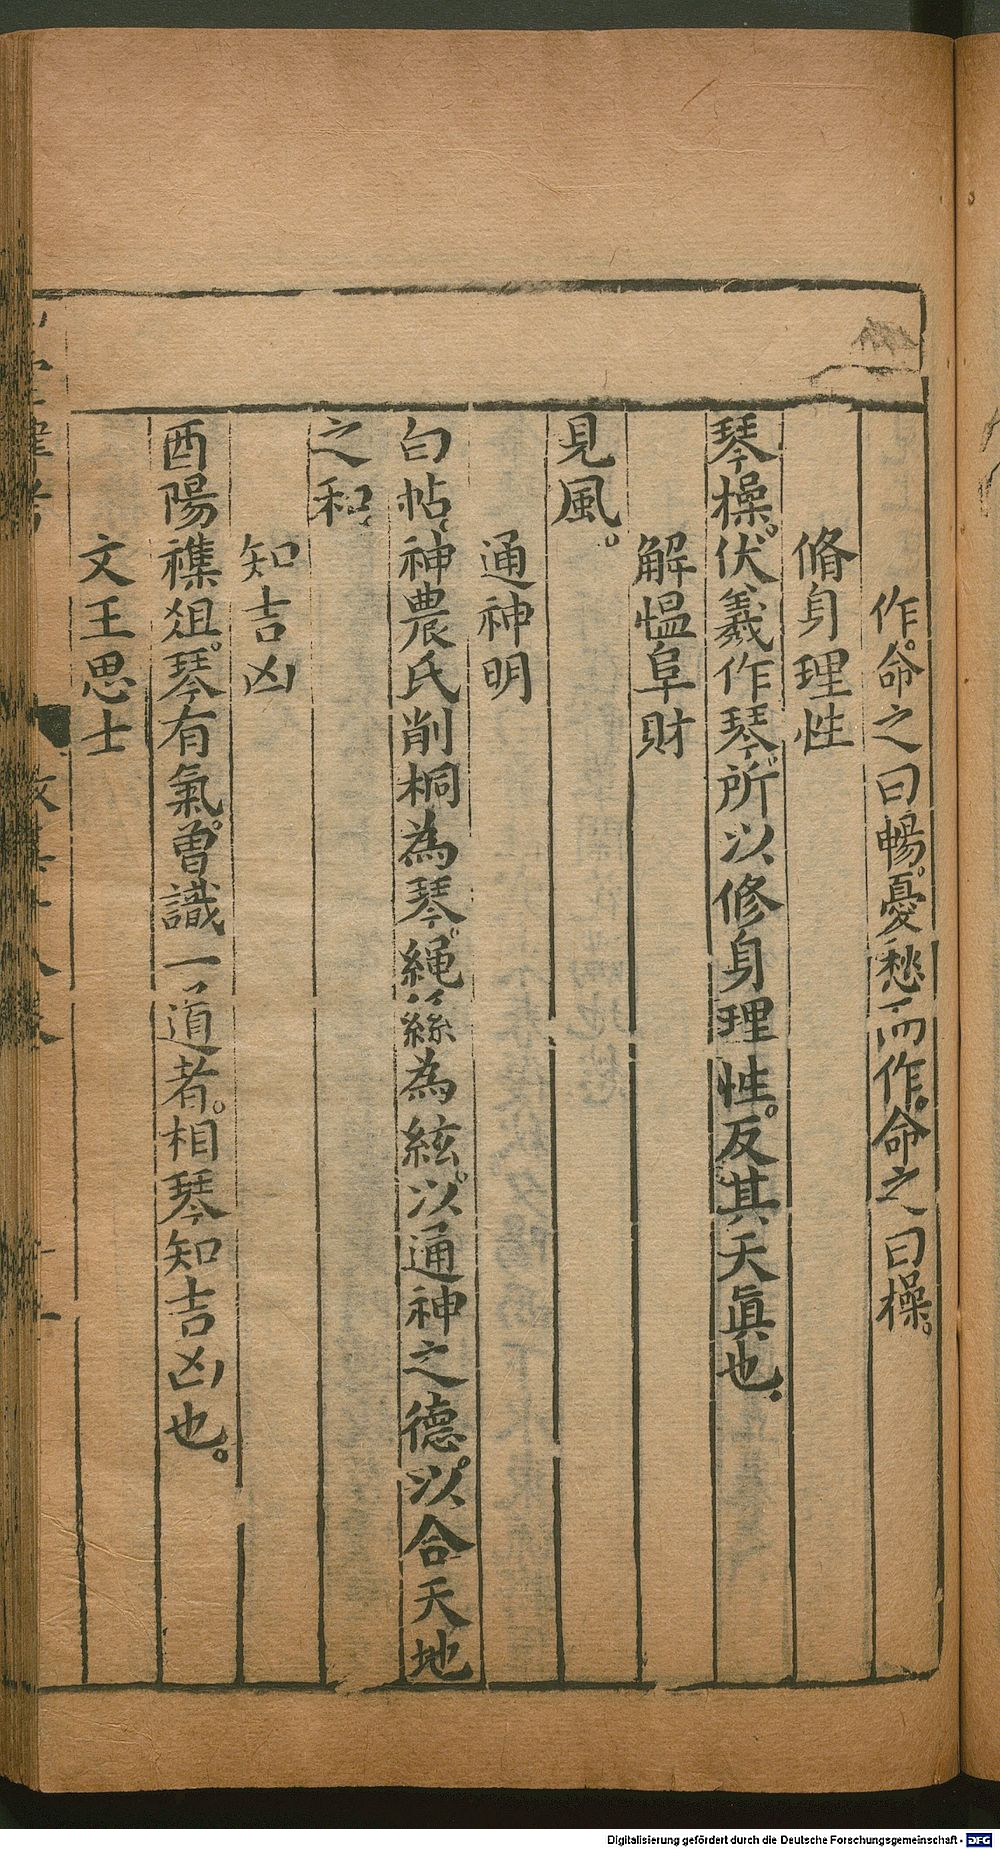 作。命之曰暢。憂愁而作。命之曰操。
脩身理性
琴操。伏羲作琴。所以修身理性。反其天眞也。
解慍阜財
見風。
通神明
白帖、神農氏削桐為琴。繩絲為絃。以通神之德。以合天地
之和。
知吉凶
酉陽襍俎。琴有氣。曾識一道者。相琴知吉凶也。
文王思士
Digitalisierung gefördert durch die Deutsche Forschungsgemeinschaft - DFG